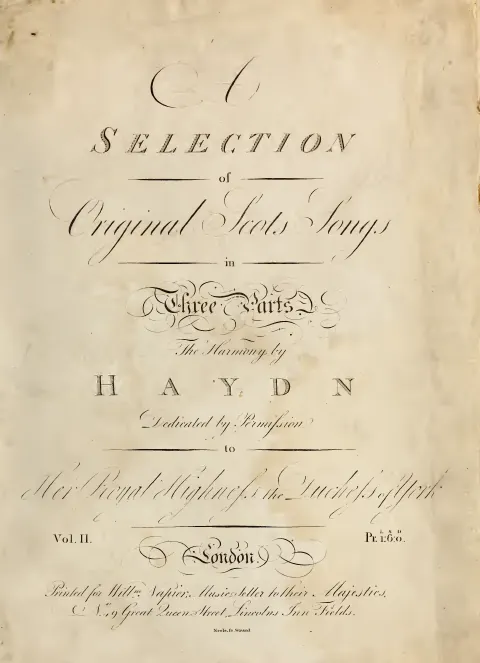 A
SELECTION
of
Original Scots Songs
in
Three Parts
The Harmony by
HAYDN
Dedicated by Permiſsion
to
Her Royal Highneſs the Ducheſs of York
Vol. II.
L S D
Pr. 1:6:0.
London.
Printed for Willm. Napier, Musicseller to their Majesties,
No. 49 Great Queen Street, Lincolns Inn Fields.